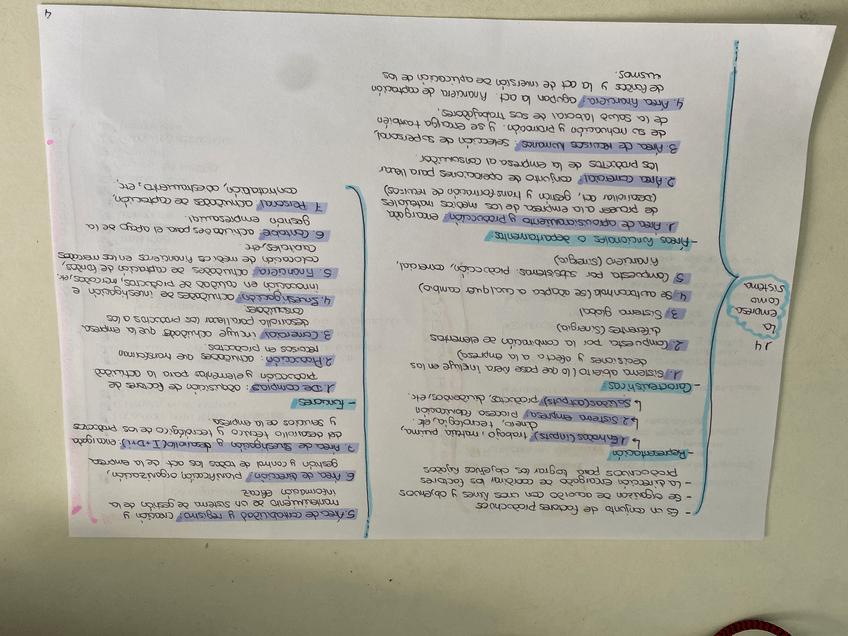 1.4
La
empresa
como
sistema
- Es un conjunto de factores productivos
- Se organizan de acuerdo con unos fines y objetivos
- La dirección encargada de combinar los factores
productivos para lograr los objetivos fijados
- Representación
1. Entradas (inputs) trabajo, materia prima,
dinero, tecnología, etc.
↳ 2. Sistema empresa, proceso fabricación
↳ Salidas (outputs) productos, ganancias, etc.
- Características
1. Sistema abierto (lo que pase fuera incluye en las
decisiones y afecta a la empresa)
2. Compuesta por la combinación de elementos
diferentes (sinergia)
3. Sistema global
4. Se autocontrola (se adapta a cualquier cambio)
5. Compuesta por subsistemas: producción, comercial,
financiero (sinergia)
- Áreas funcionales o departamentos
1. Área de aprovisionamiento y producción: encargada
de proveer a la empresa de los medios materiales
(desarrollar act. gestión y transformación de recursos)
2. Área comercial: conjunto de operaciones para llevar
los productos de la empresa al consumidor.
3. Área de recursos humanos: selección de su personal,
de su motivación y promoción. y se encarga también
de la salud laboral de sus trabajadores.
4. Área financiera: agrupan la act. financiera de captación
de fondos y la act de inversión de aplicación de los
mismos.
5. Área de contabilidad y registro: creación y
mantenimiento de un sistema de gestión de la
información eficaz
6. Área de dirección: planificación organización,
gestión y control de todas las act. de la empresa
7. Área de investigación y desarrollo (I+D+i): encargada
del desarrollo técnico y tecnológico de los productos
y servicios de la empresa.
- Funciones
1. De compras: adquisición de factores de
producción y elementos para la actividad
2. Producción: actividades que transforman
recursos en productos
3. Comercial: incluye actividades que la empresa
desarrolla para llevar los productos a los
consumidores
4. Investigación: actividades de investigación e
innovación en calidad de productos, mercados, etc.
5. Financiera: actividades de captación de fondos,
colocación de medios financieros en los mercados
capitales, etc.
6. Contable: actividades para el apoyo de la
gestión empresarial
7. Personal: actividades de captación,
contratación, adiestramiento, etc.
4